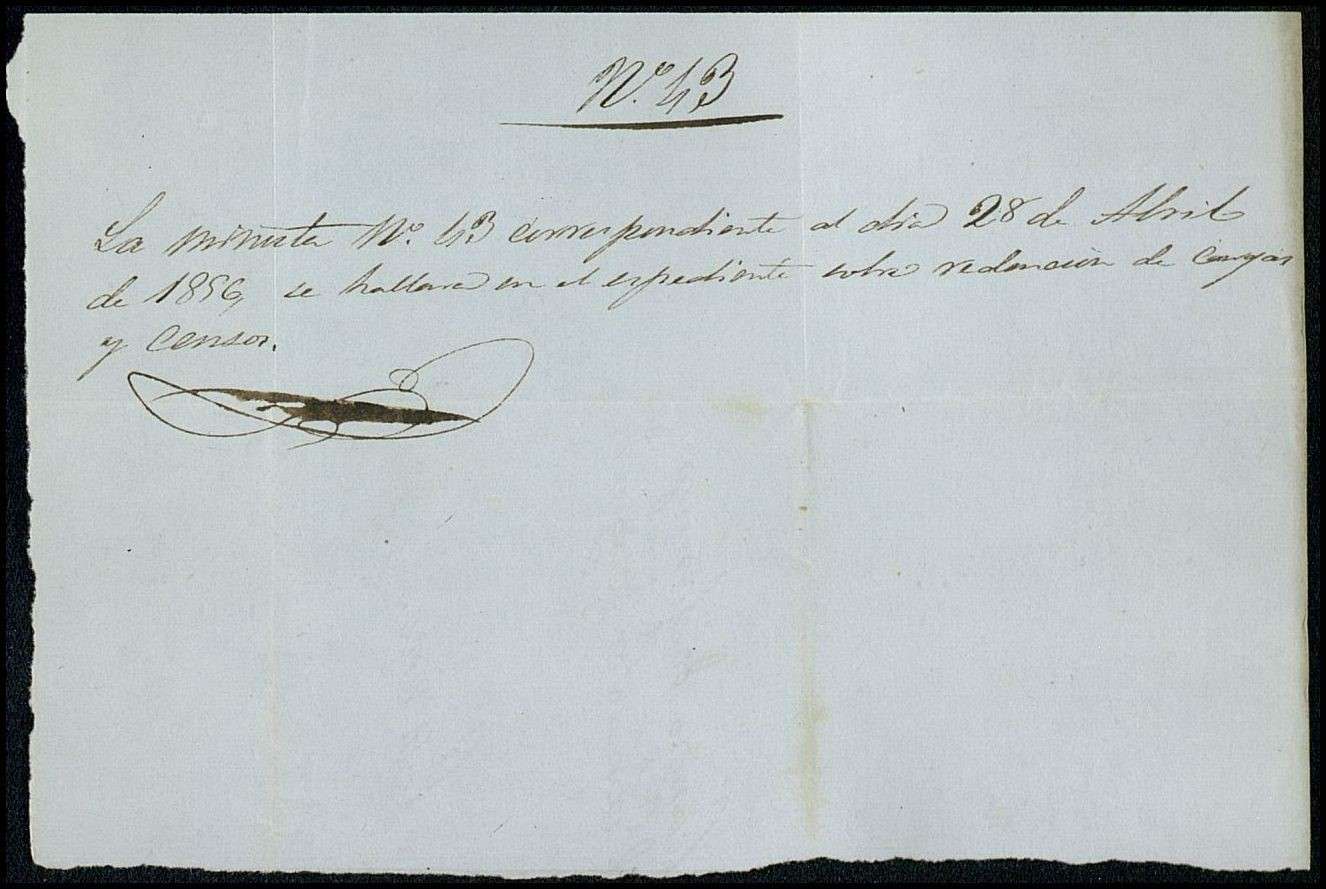 Nº. 43
La minuta Nº. 43 correspondiente al dia 28 de Abril
de 1856, se hallara en el espediente sobre redencion de cargas
y censos.